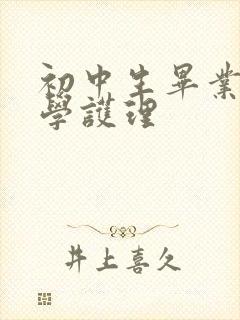 初中生畢業
學護理
井上喜久